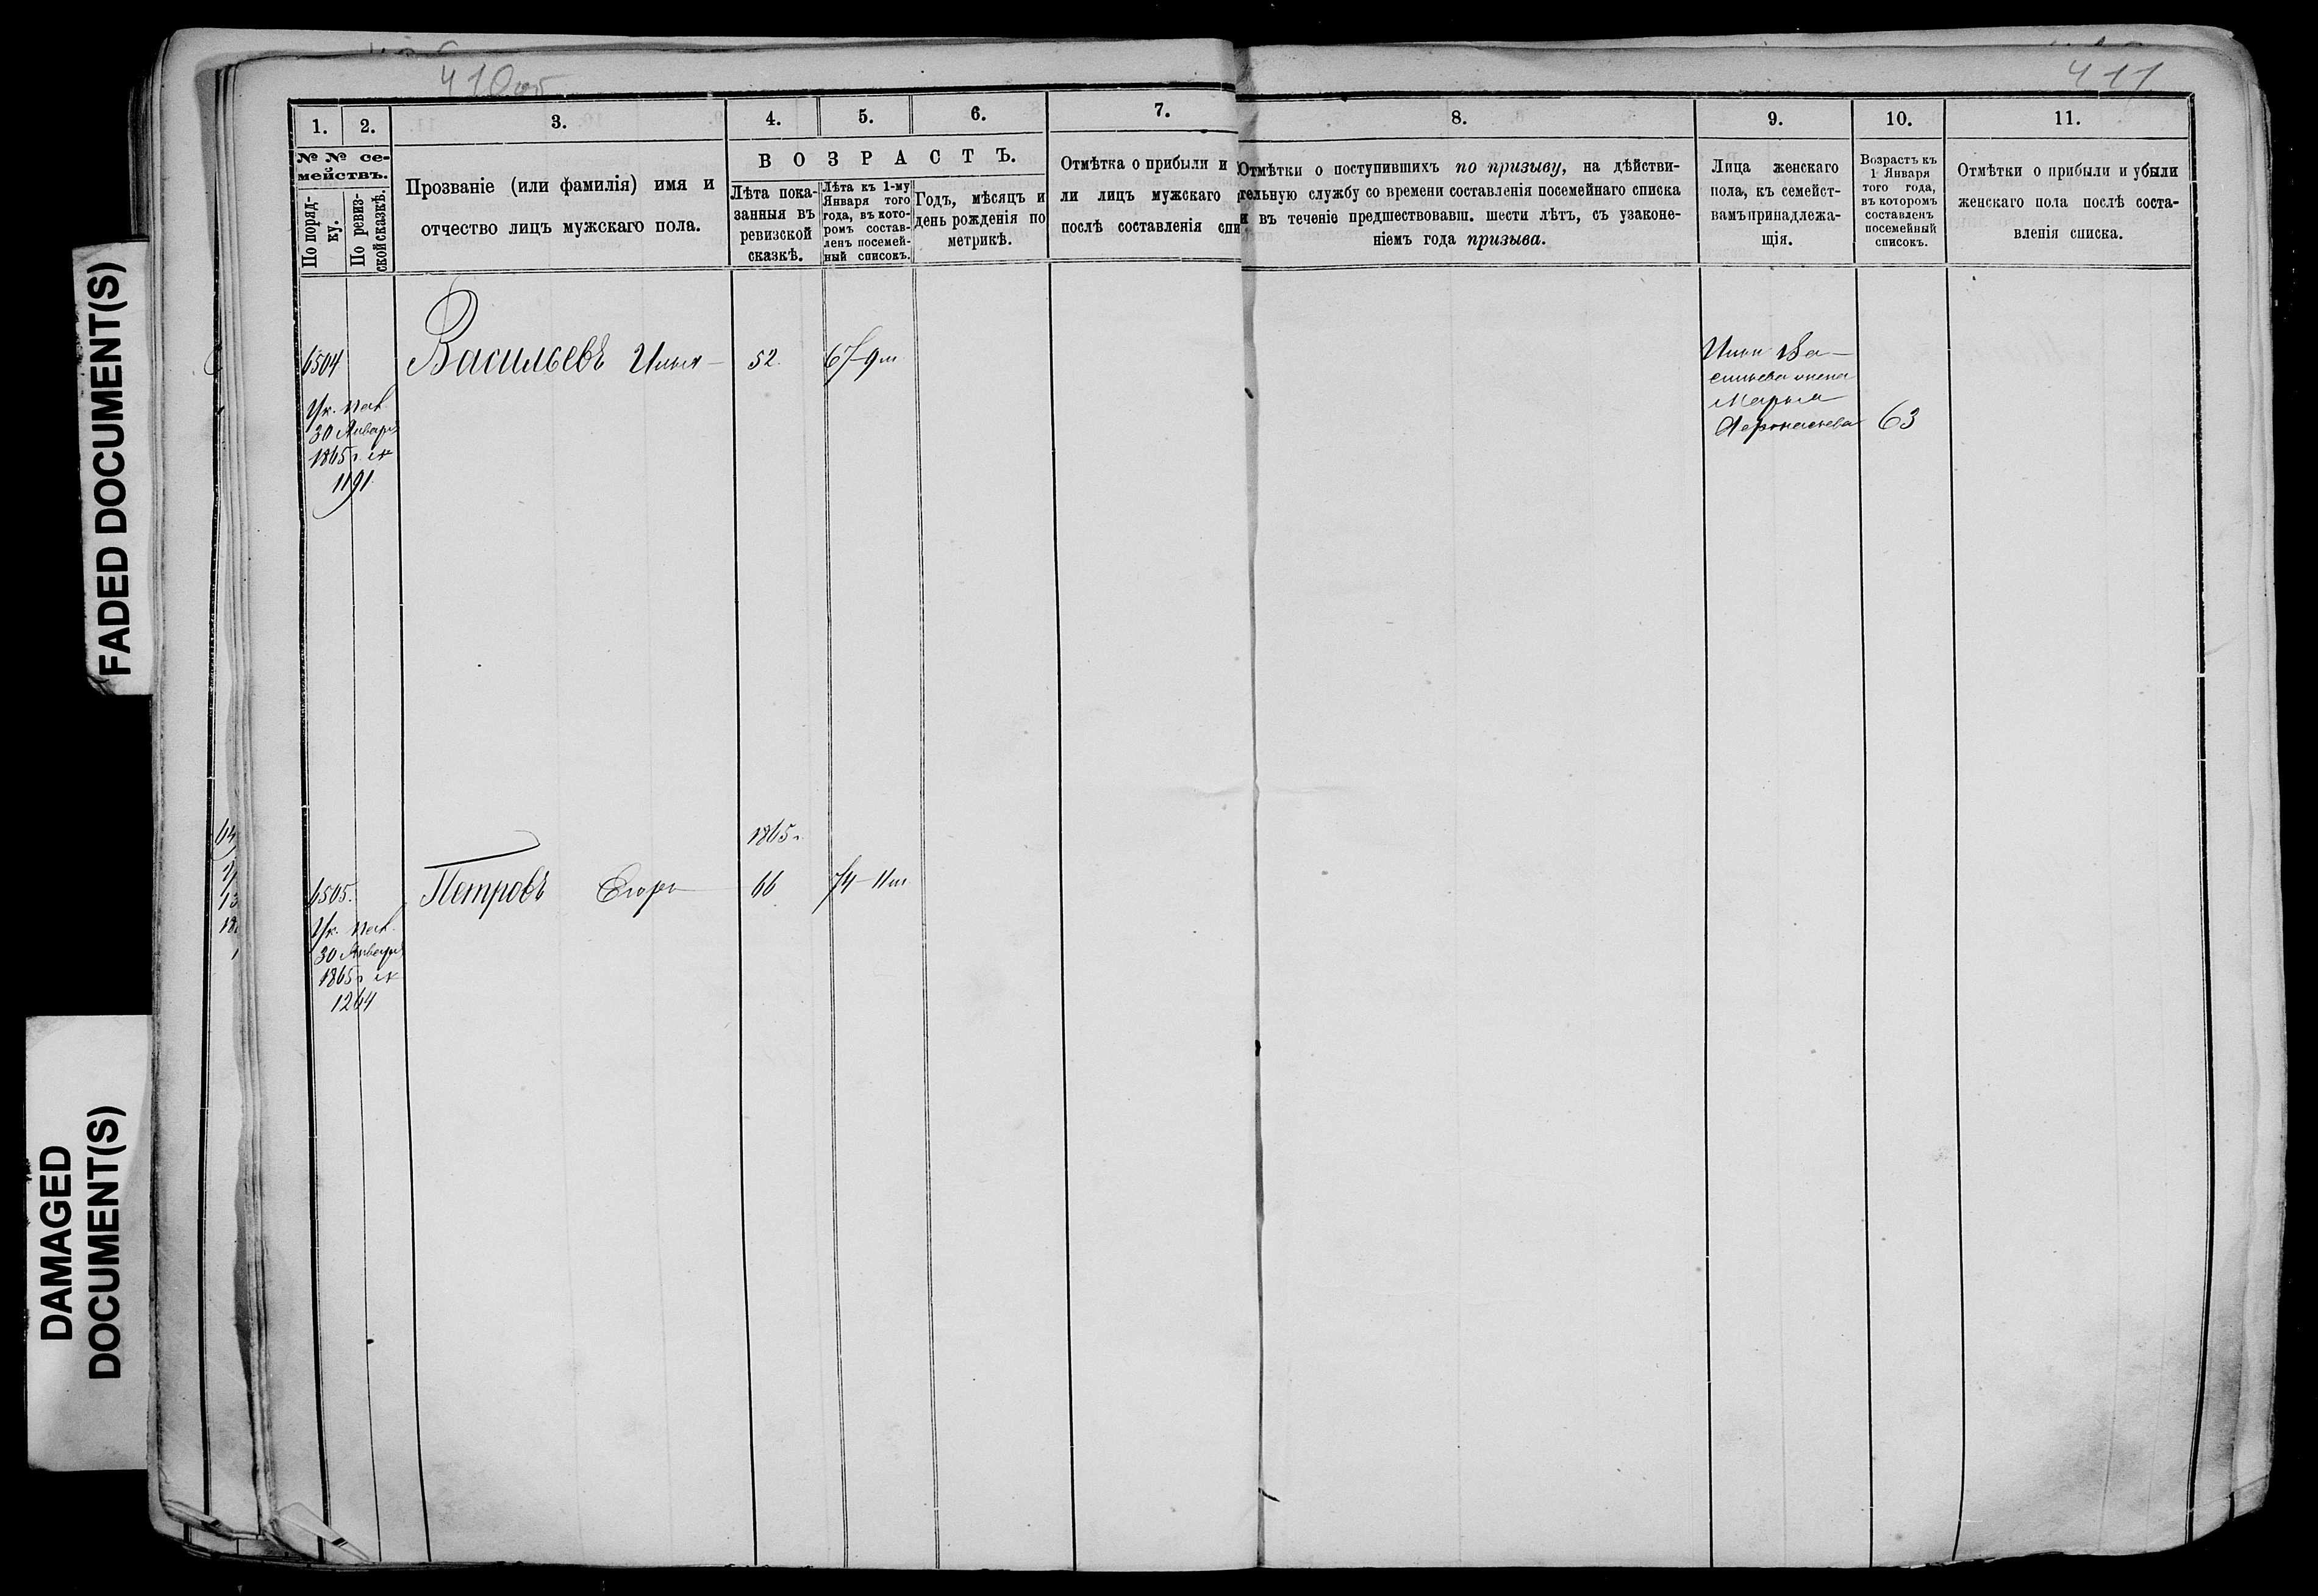 410об
411
FADED DOCUMENT(S)
DAMAGED
DOCUMENT(S)
1.
2.
3.
4.
5.
6.
7.
№ № се-
мействъ.
По поряд-
ку.
По ревиз-
ской сказкѣ.
Прозваніе (или фамилія) имя и
отчество лицъ мужскаго пола.
ВОЗРАСТЪ.
Лѣта пока-
занныя въ
ревизской
сказкѣ.
Лѣта къ 1-му
Января того
года, въ кото-
ромъ состав-
ленъ посемей-
ный списокъ.
Годъ, мѣсяцъ и
день рожденія по
метрикѣ.
Отмѣтка о прибыли и
ли лицъ мужскаго
послѣ составленія спи
8.
9.
10.
11.
Отмѣтки о поступившихъ по призыву, на дѣйстви-
тельную службу со времени составленія посемейнаго списка
и въ теченіе предшествовавш. шести лѣтъ, съ узаконе-
ніемъ года призыва.
Лица женскаго
пола, къ семейст-
вамъ принадлежа-
щія.
Возрастъ къ
1 Января
того года,
въ которомъ
составленъ
посемейный
списокъ.
Отмѣтки о прибыли и убыли
женскаго пола послѣ соста-
вленія списка.
6504
Васильевъ Илья
52.
67-9м
Ук.
30 Января
1865г. №
1191
Ильи Ва-
сильева жена
Марья
Афонасьева 63
1865г.
6505.
Петровъ Егоръ
66
74-11м
Ук.
30 Января
1865г. №
1264